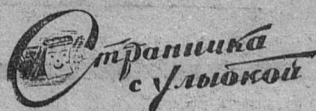 Страничка
с улыбкой